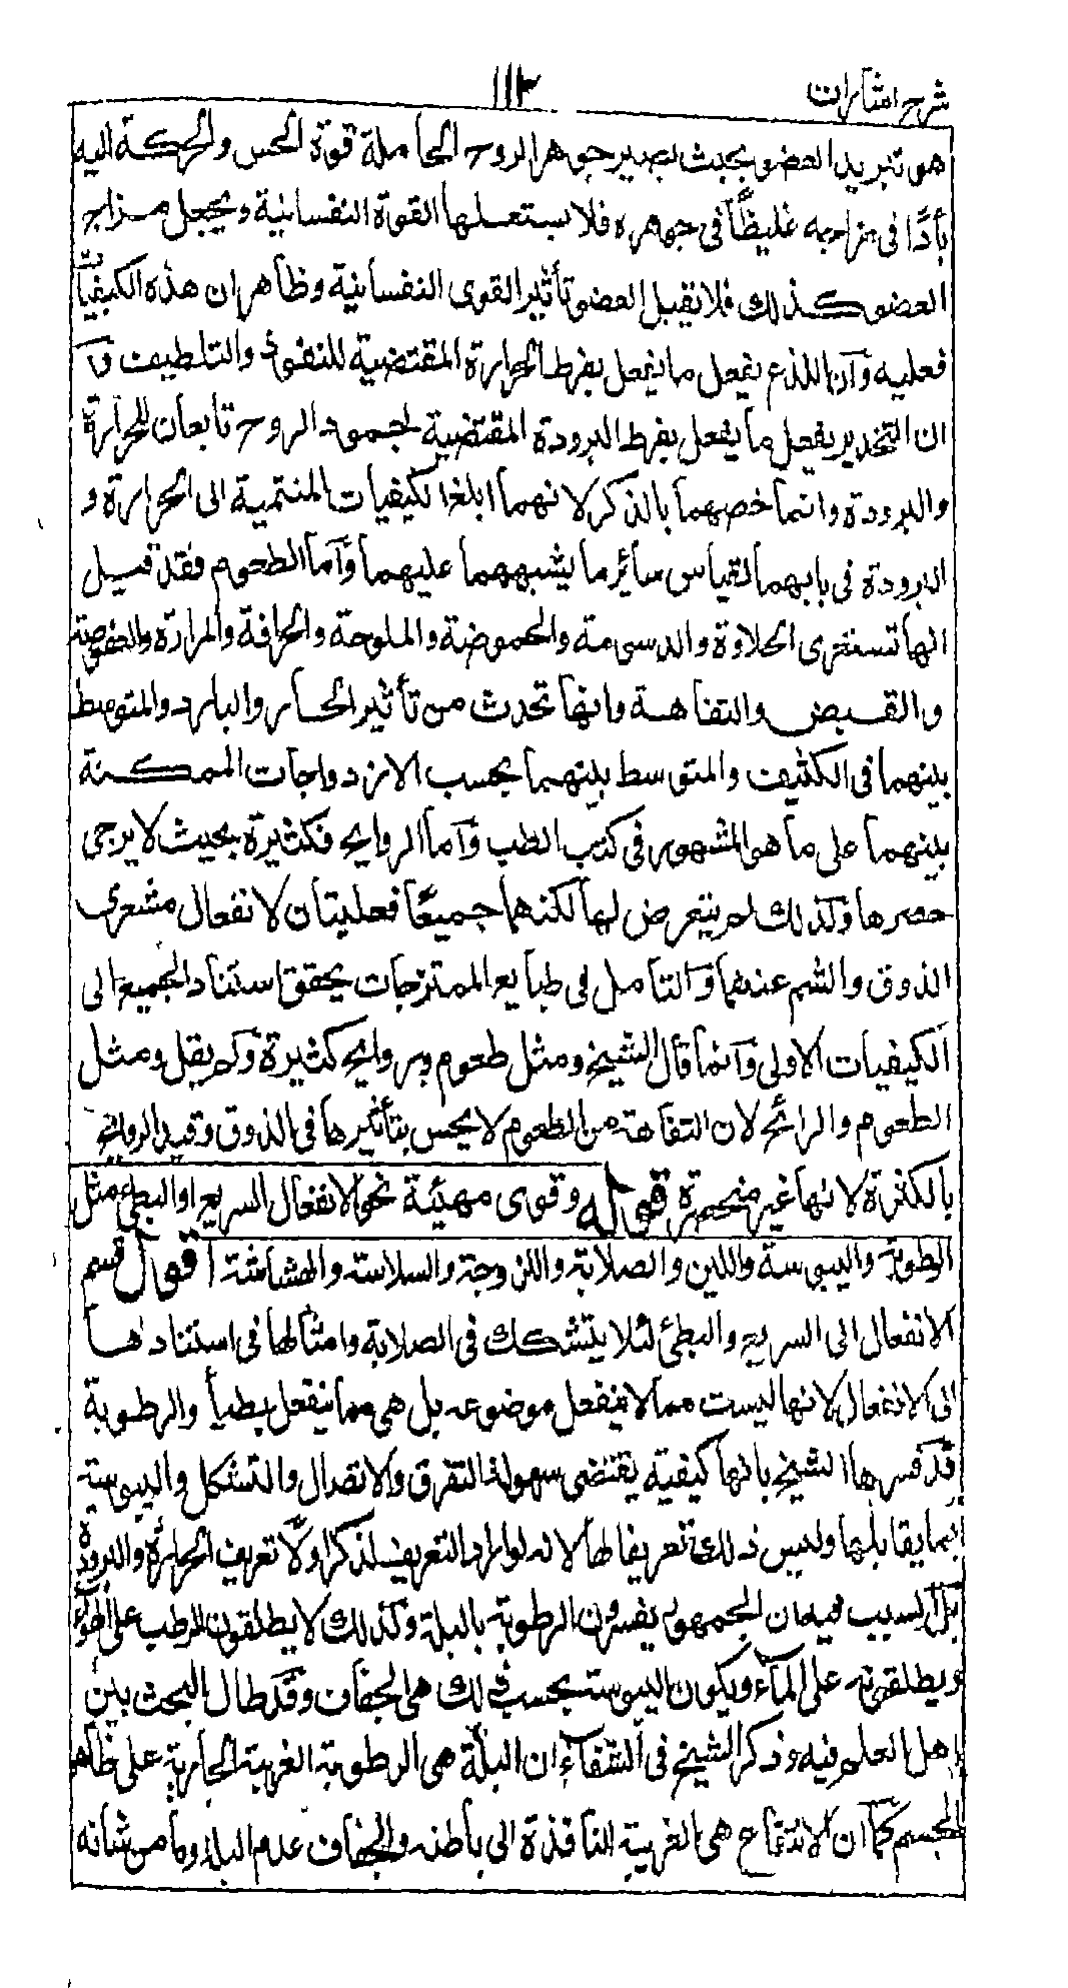 شرح اشارات
١١٢
هو تبريد العضو بحيث يصير جوهر الروح الحاملة قوة الحس والحركة اليه
باردًا فى مزاجه غليظًا فى جوهره فلا يستعملها القوة النفسانية ويجعل مزاج
العضو كذلك فلا تقبل العضو تأثير القوى النفسانية وظاهر ان هذه الكيفيات
فعليه وآن اللذع يفعل ما يفعل بفرط الحرارة المقتضية للنفوذ والتلطيف و
ان التخدير يفعل ما يفعل بفرط البرودة المقتضية لجمود الروح تابعان للحرارة
والبرودة وانما خصهما بالذكر لانهما ابلغ الكيفيات المنتمية الى الحرارة و
البرودة فى بابهما لقياس سائر ما يشبههما عليهما وآما الطعوم فقد قيل
انها تسعة هى الحلاوة والدسومة والحموضة والملوحة والحرافة والمرارة والعفوصة
والقبض والتفاهة وانها تحدث من تأثير الحار والبارد والمتوسط
بينهما فى الكثيف والمتوسط بينهما بحسب الازدواجات الممكنة
بينهما على ما هو المشهور فى كتب الطب وآما الروايح فكثيرة بحيث لا يرجى
حصرها وكذلك لم يتعرض لها لكنهما جميعًا فعليتان لانفعال مشعرى
الذوق والشم عنهما والتأمل فى طبايع الممتزجات يحقق استناد الجميع الى
الكيفيات الاولى وآنما قال الشيخ ومثل طعوم وروايح كثيرة ولم يقل ومثل
الطعوم والرائح لان التفاهة من الطعوم لا يحس بتأثيرها فى الذوق وقيد الروايح
بالكثرة لانها غير منحصرة قوله وقوى مهيئة نحو الانفعال السريع او البطى مثل
الرطوبة واليبوسة واللين والصلابة واللزوجة والسلاسة والهشاشة اقول قسم
الانفعال الى السريع والبطئ لئلا يتشكك فى الصلابة وامثالها فى استنادها
الى الانفعال لانها ليست مما لا ينفعل موضوعه بل هى مما ينفعل بطيأ والرطوبة
قد فسرها الشيخ بانها كيفية يقتضى سهولة التفرق والاتصال والتشكل واليبوسة
بما يقابلها وليس ذلك تعريفا لها لانه لو اراد التعريف لذكر اولًا تعريف الحرارة والبرودة
بل السبب فيه ان الجمهور يفسرون الرطوبة بالبلة وكذلك لا يطلقون الرطب على الهواء
ويطلقونه على المآء ويكون اليبوسة بحسب ذلك هى الجفاف وقد طال البحث بين
اهل العلم فيه وذكر الشيخ فى الشفآء ان البلّة هى الرطوبة الغريبة الجارية على ظاهر
الجسم كما ان الانتقاع هى الغريبة النافذة الى باطنه والجفاف عدم البلة وما من شانه